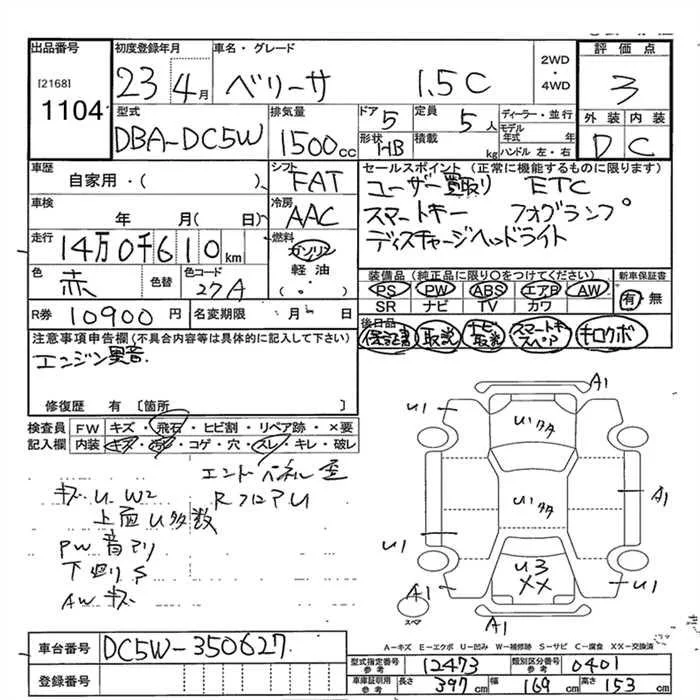 出品番号 初度登録年月 車名・グレード 2WD・4WD 評価点
[2168] 1104 23 4月 ベリーサ 1.5C 3
型式 排気量 ドア 定員 ディーラー・並行 外装 内装
DBA-DC5W 1500cc 5 5人 モデル年式 年 D C
形状 HB 積載 kg ハンドル 左・右
車歴 シフト セールスポイント (正常に機能するものに限ります)
自家用・( ) FAT ユーザー買取り ETC
車検 冷房 スマートキー フォグランプ
年 月( 日) AAC ディスチャージヘッドライト
走行 燃料
14万0千610km ガソリン
色 色替 色コード 軽油
赤 27A ( 。 )
装備品(純正品に限り○をつけてください) 新車保証書
PS PW ABS エアB AW 有・無
SR ナビ TV カワ
R券 10900円 名変期限 月 日
後日品 保証書 取説 ナビ取説 スマートキースペア キロクボ
注意事項申告欄(不具合内容等は具体的に記入して下さい)
エンジン異音.
修復歴 有 [箇所 ]
検査員 FW キズ・飛石・ヒビ割・リペア跡・×要
記入欄 内装 キズ・汚れ・コゲ・穴・スレ・キレ・破レ
エンドパネル歪
キズ U W2 RフロアU
上面U多数
PW音アリ
下廻りS
AWキズ
A1
U1
U多
A1
U多
U1
U3
XX
A1 U1
スペア
A1
車台番号 DC5W-350627
登録番号
A−キズ E−エクボ U−凹み W−補修跡 S−サビ C−腐食 XX−交換済
型式指定番号 参考 12473 類別区分番号 参考 0401
車庫証明用 参考 長さ 397cm 幅 169cm 高さ 153cm